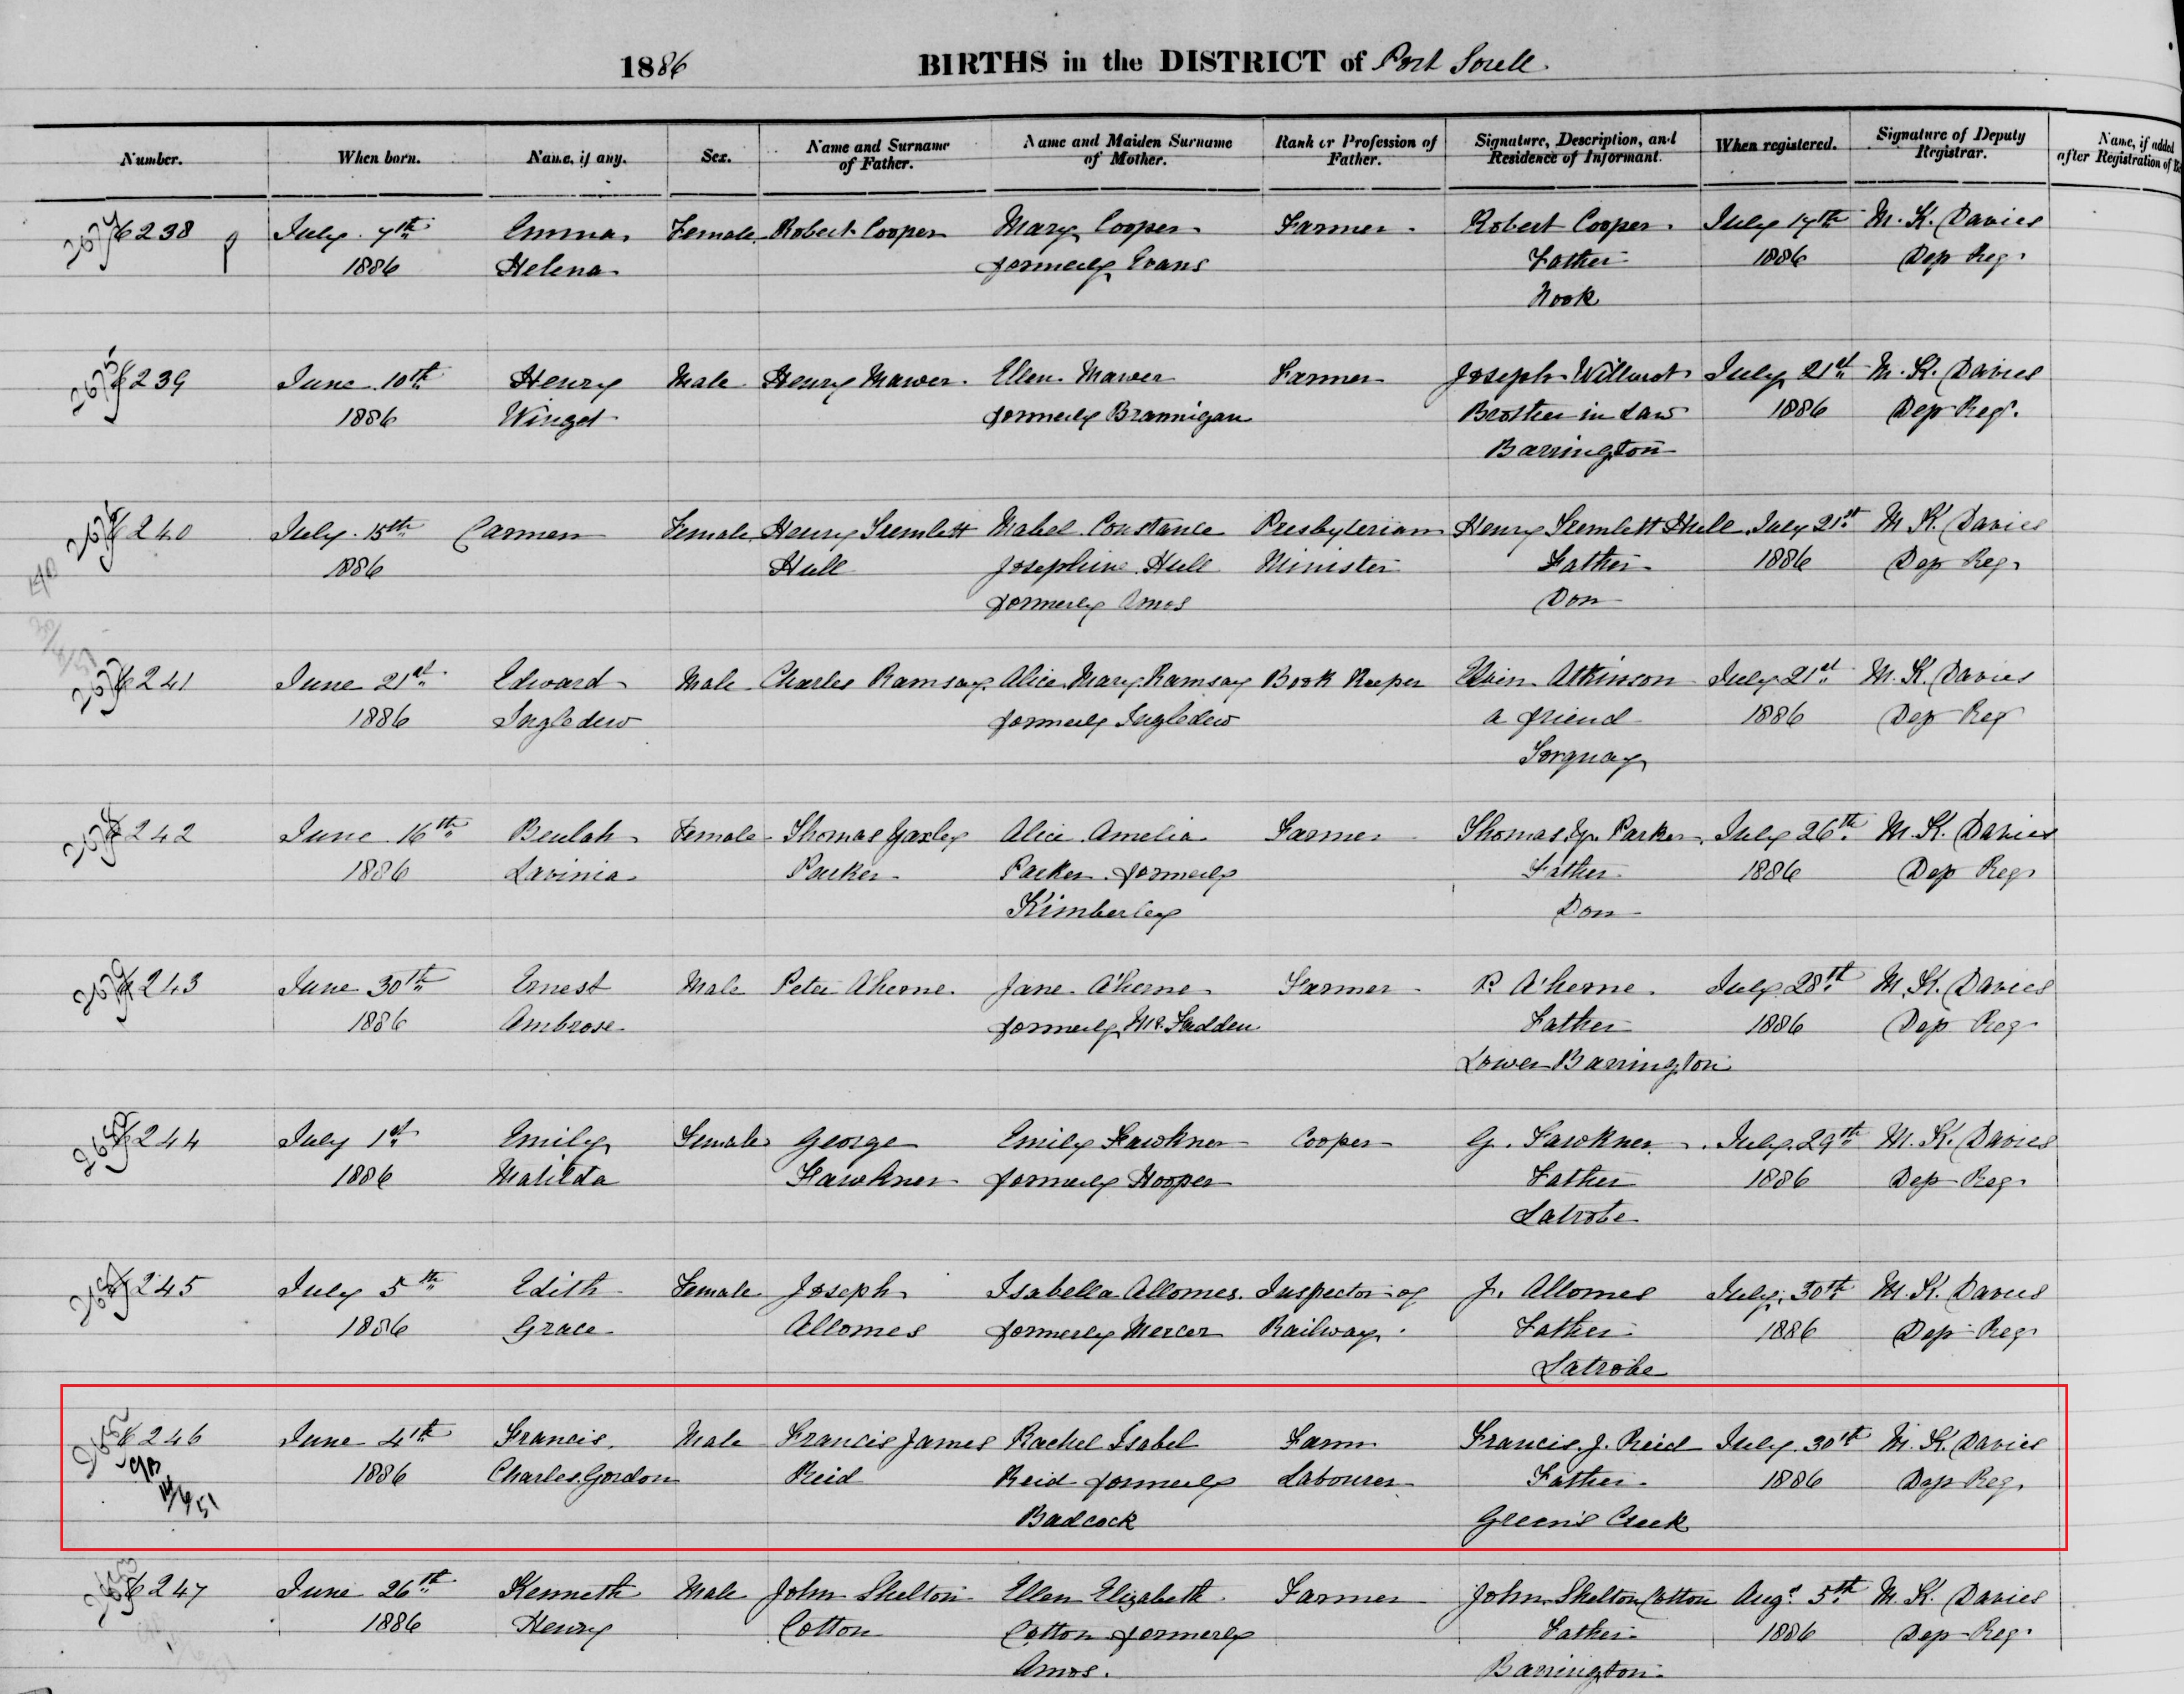 1886 BIRTHS in the DISTRICT of Port Sorell
Number. When born. Name, if any. Sex. Name and Surname of Father. Name and Maiden Surname of Mother. Rank or Profession of Father. Signature, Description, and Residence of Informant. When registered. Signature of Deputy Registrar. Name, if added after Registration of
2674 238 July 7th Emma Female Robert Cooper Mary Cooper Farmer Robert Cooper July 17th M. K. Davies
1886 Helena formerly Evans Father 1886 Dep Reg.
Nook
2675 239 June 10th Henry Male Henry Mawer Ellen Mawer Farmer Joseph July 21st M. K. Davies
1886 Winget formerly Brannigan Brother in Law 1886 Dep Reg.
Barrington
2676 240 July 15th Carmen Female Henry Tremlett Mabel Constance Presbyterian Henry Tremlett Hull July 21st M K. Davies
1886 Hull Josephine Hull Minister Father 1886 Dep Reg.
formerly Amos Don
2677 241 June 21st Edward Male Charles Ramsay Alice Mary Ramsay Book Keeper Atkinson July 21st M. K. Davies
1886 Ingledew formerly Ingledew a friend 1886 Dep Reg
Torquay
2678 242 June 16th Beulah Female Thomas Yaxley Alice Amelia Farmer Thomas Y. Parker July 26th M. K. Davies
1886 Lavinia Parker Parker formerly Father 1886 Dep Reg.
Kimberley Don
2679 243 June 30th Ernest Male Peter A'herne Jane A'herne Farmer P. A'herne July 28th M. K. Davies
1886 Ambrose formerly Mc.Fadden Father 1886 Dep Reg.
Lower Barrington
2680 244 July 1st Emily Female George Emily Fawkner Cooper G. Fawkner July 29th M. K. Davies
1886 Matilda Fawkner formerly Hooper Father 1886 Dep Reg.
Latrobe
2681 245 July 5th Edith Female Joseph Isabella Allomes Inspector of J. Allomes July 30th M. K. Davies
1886 Grace Allomes formerly Mercer Railway Father 1886 Dep Reg.
Latrobe
2682 246 June 4th Francis Male Francis James Rachel Isabel Farm Francis. J. Reid July 30th M. K. Davies
1886 Charles Gordon Reid Reid formerly Labourer Father 1886 Dep Reg.
Badcock Green's Creek
2683 247 June 26th Kenneth Male John Shelton Ellen Elizabeth Farmer John Shelton Cotton Aug. 5th M. K. Davies
1886 Henry Cotton Cotton formerly Father 1886 Dep Reg.
Amos. Barrington